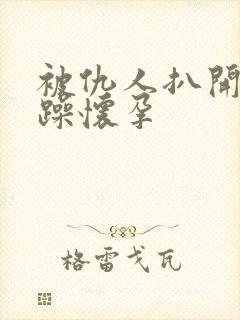 被仇人扒開
躁懷孕
格雷戈瓦